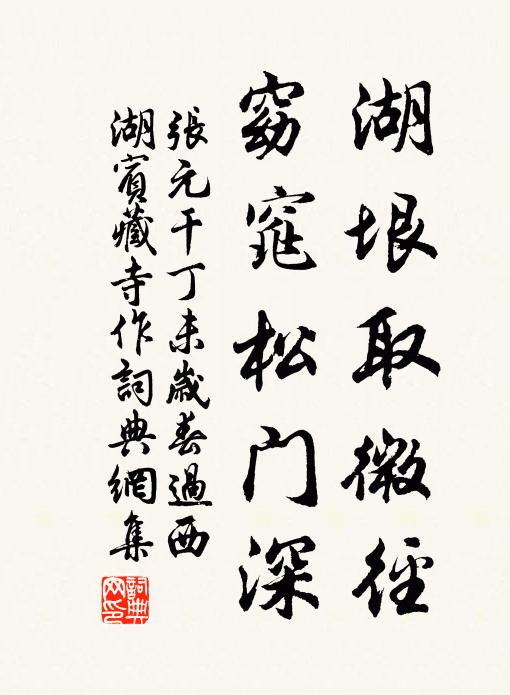 湖垠取微徑
窈窕松门深
張元干丁未歲春過西
湖賓藏寺作詞典網集
詞典网印